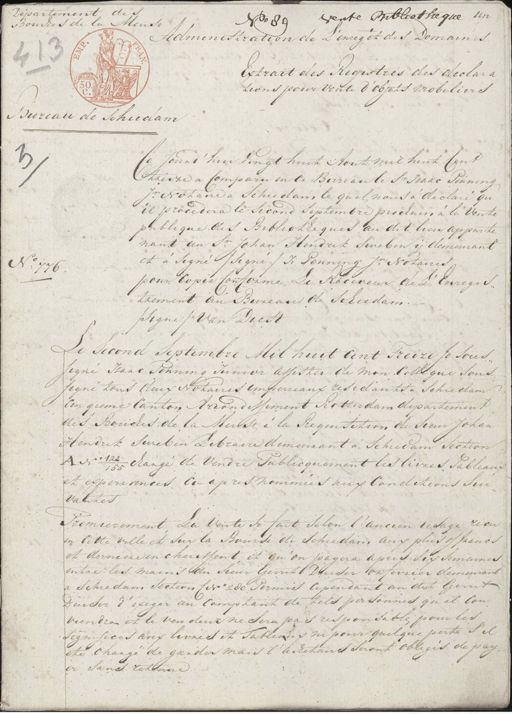 Département des
Bouches de la Meuse
No 89 vente Bibliotheque un
413
Administration de L'enregt des Domaines
EMP. FRAN.
50 C.
Extrait des Registres des déclara
tions pour vente d'objets mobiliers
Bureau de Schiedam
3/
Ce jourd'hui vingt huit Aout mil huit Cent
treize a Comparu en ce Bureau le Sr. Isaac Ponning
Jr. Notaire a Schiedam lequel nous a déclaré qu
il procedera le Second Septembre prochain a la Vente
publique des Bibliotheques au dit lieu apparte
nant au Sr. Johan Hendrik y demeurant
No 776.
et a Signé /signé/ I. Ponning Jr Notaire,
pour Copie Conforme Le Receveur de L'Enregis
trement Au Bureau de Schiedam
signé / Van Diest
Le Second Septembre Mil huit cent Treize je Sous
signé Isaac Ponning Junior assister de mon Collegue Sous
signé tous deux Notaires imperiaux residants a Schiedam
Canton Arrondissement Rotterdam departement
des Bouches de la Meuse à la Requisition de Sieur Johan
Hendrik Libraire demeurant à Schiedam Section
A No 155 Chargé de Vendre Publiquement les livres, Tableaux
et Ci apres nommées aux Conditions Sui
vantes
Premierement, La Vente Se fait Selon l'ancien usage
en Cette ville et Sur la Bourse de Schiedam aux plus offrants
et derniers encherisseurs et qu'on payera apres six Semaines
entre les mains du Sieur Gerrit demeurant
a Schiedam Section C No 280 Permis Cependant au dit Gerrit
d'exiger au Comptant de tels personnes qu'il con
viendra et le vendeur ne Sera pas responsable pour les
aux livres et Tableaux ni pour quelque perte S'il
etc chargé de garder mais l'acheteurs Seront obligés de pay
er Sans retenue